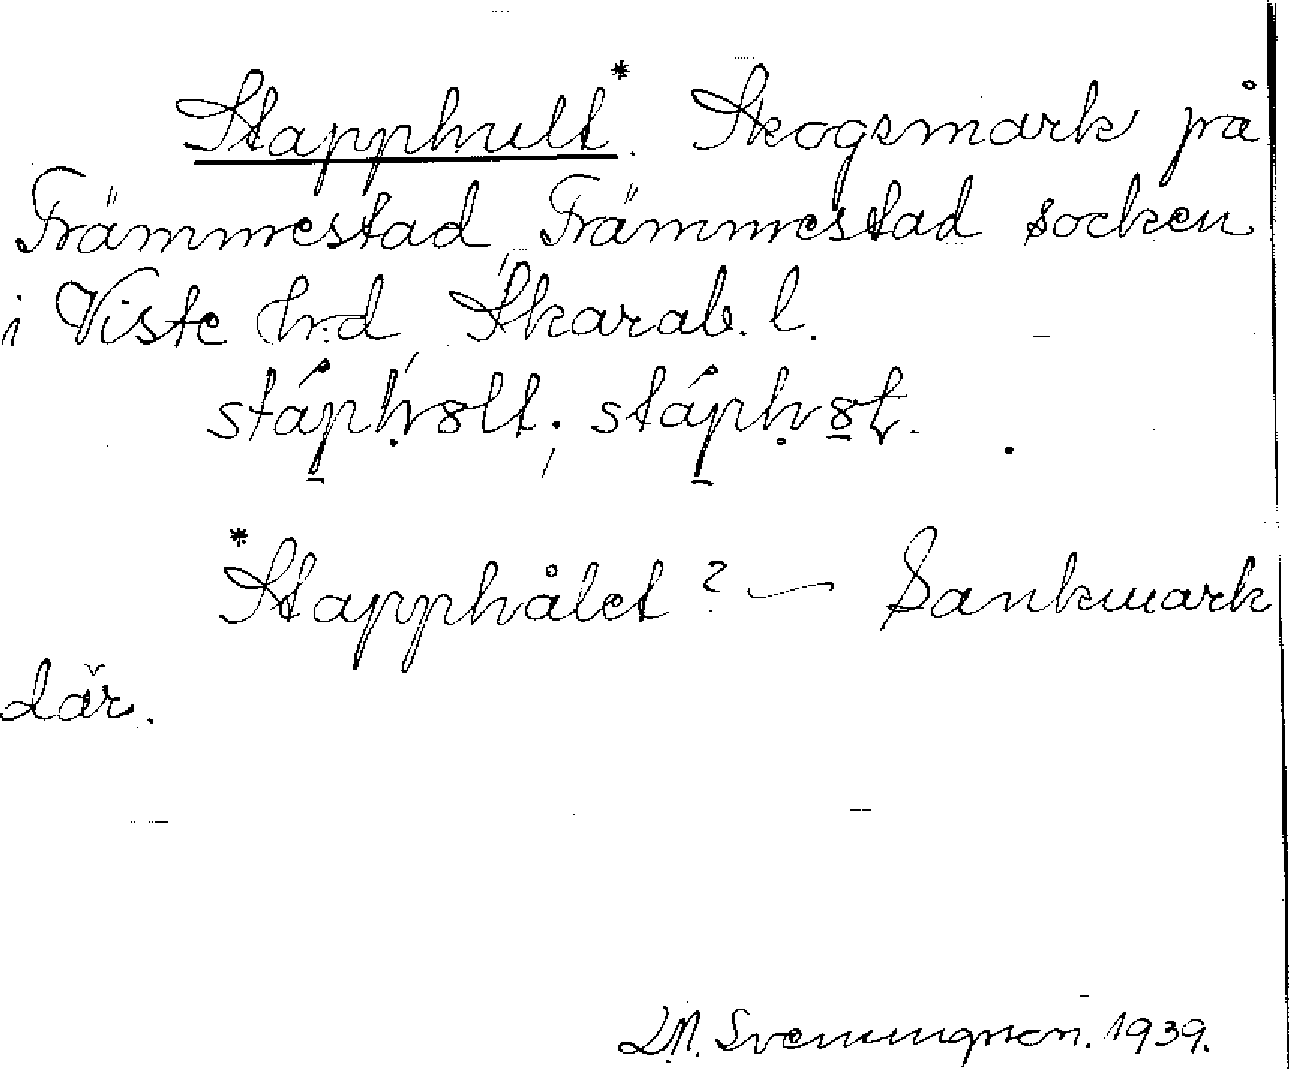 Stapphult.* Skogsmark på
Främmestad, Främmestad socken
i Viste h:d, Skarab. l.
stápḥ8lt; stápḥ8t.
*Stapphålet? — Sankmark
där.
1939.